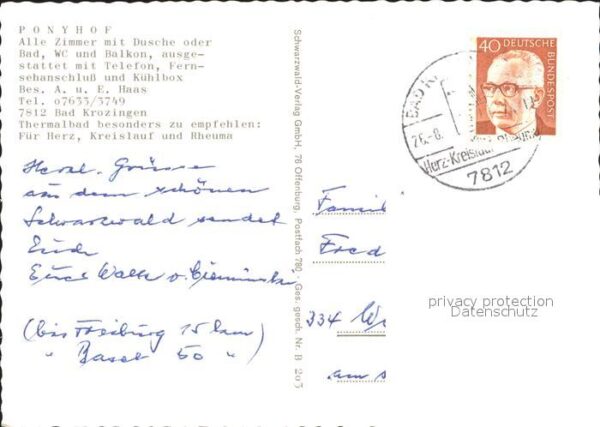 PONYHOF
Alle Zimmer mit Dusche oder
Bad, WC und Balkon, ausge-
stattet mit Telefon, Fern-
sehanschluß und Kühlbox
Bes. A. u. E. Haas
Tel. 07633/3749
7812 Bad Krozingen
Thermalbad besonders zu empfehlen:
Für Herz, Kreislauf und Rheuma
Herzl. Grüsse
aus dem schönen
Schwarzwald sendet
Euch
(bis Freiburg 15 km)
" Basel 50 "
Schwarzwald-Verlag GmbH, 76 Offenburg, Postfach 780 · Ges. gesch. Nr. B 203
40 DEUTSCHE
BUNDESPOST
BAD
26.-8.
Herz-Kreislauf
7812
Famil
Fred
334 W
am s
privacy protection
Datenschutz